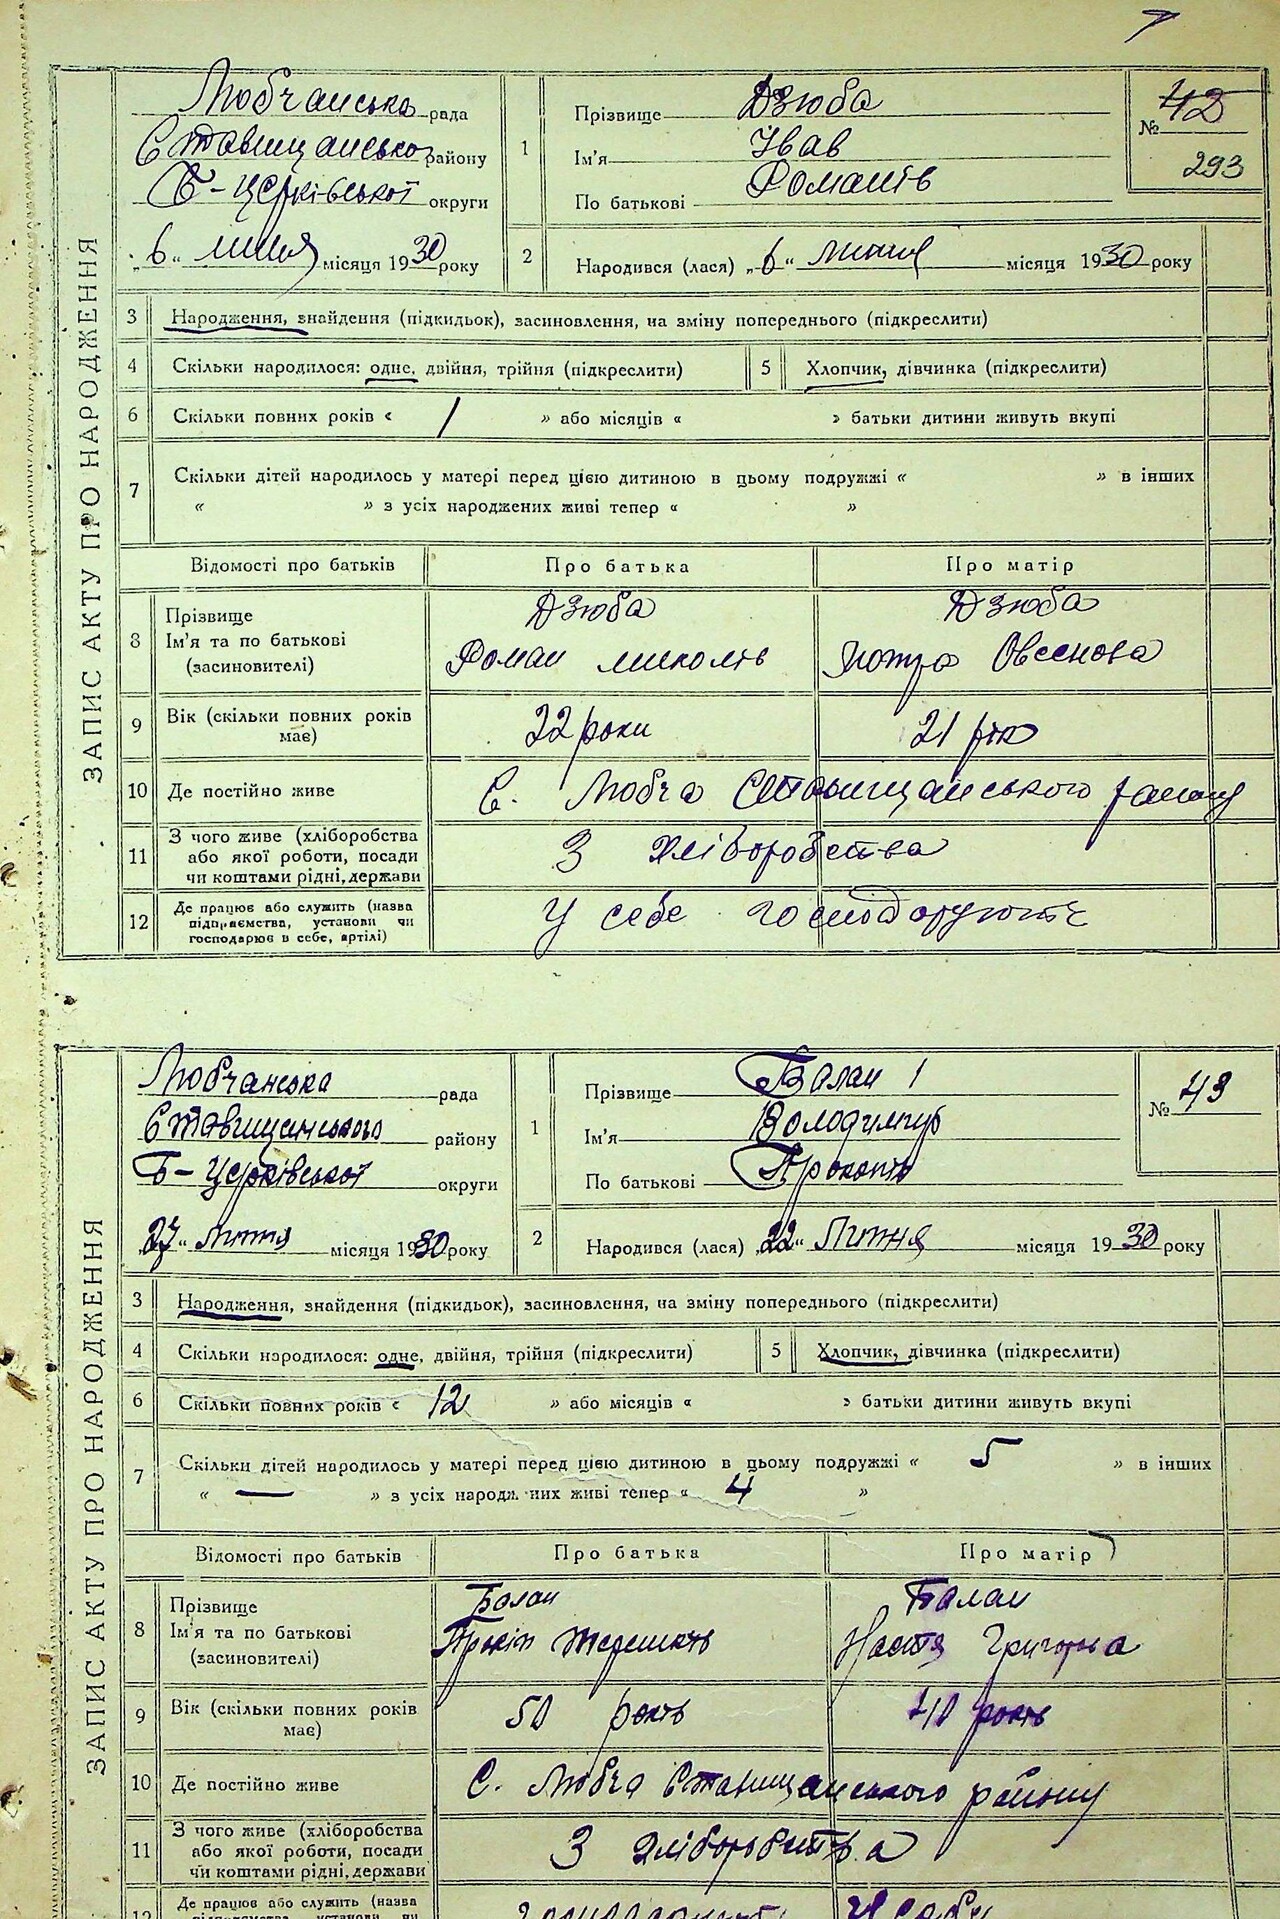 ЗАПИС АКТУ ПРО НАРОДЖЕННЯ
Любчанська рада
Ставищансько району
Б-Церківської округи
„6“ липня місяця 1930 року
1
Прізвище Дзюба
Ім'я Іван
По батькові Романів
№ 42
293
2
Народився (лася) „6“ липня місяця 1930 року
3 Народження, знайдення (підкидьок), засиновлення, на зміну попереднього (підкреслити)
4 Скільки народилося: одне, двійня, трійня (підкреслити) 5 Хлопчик, дівчинка (підкреслити)
6 Скільки повних років « / » або місяців « » батьки дитини живуть вкупі
7 Скільки дітей народилось у матері перед цією дитиною в цьому подружжі « » в інших
« » з усіх народжених живі тепер « »
Відомості про батьків Про батька Про матір
8 Прізвище Дзюба Дзюба
Ім'я та по батькові Роман Миколів Мотря Овсєнова
(засиновителі)
9 Вік (скільки повних років має) 22 роки 21 рік
10 Де постійно живе С. Любча Ставищанського району
11 З чого живе (хліборобства або якої роботи, посади чи коштами рідні, держави З хліборобства
12 Де працює або служить (назва підприємства, установи чи господарює в себе, артілі) У себе господарують
ЗАПИС АКТУ ПРО НАРОДЖЕННЯ
Любчанська рада
Ставищанського району
Б-Церківської округи
„27“ липня місяця 1930 року
1
Прізвище Балан
Ім'я Володимир
По батькові Прокопів
№ 43
2
Народився (лася) „22“ Липня місяця 1930 року
3 Народження, знайдення (підкидьок), засиновлення, на зміну попереднього (підкреслити)
4 Скільки народилося: одне, двійня, трійня (підкреслити) 5 Хлопчик, дівчинка (підкреслити)
6 Скільки повних років « 12 » або місяців « » батьки дитини живуть вкупі
7 Скільки дітей народилось у матері перед цією дитиною в цьому подружжі « 5 » в інших
« — » з усіх народжених живі тепер « 4 »
Відомості про батьків Про батька Про матір
8 Прізвище Балан Балан
Ім'я та по батькові Прокіп Настя Григорова
(засиновителі)
9 Вік (скільки повних років має) 50 років 40 років
10 Де постійно живе С. Любча Ставищанського району
11 З чого живе (хліборобства або якої роботи, посади чи коштами рідні, держави З хліборобства
12 Де працює або служить (назва